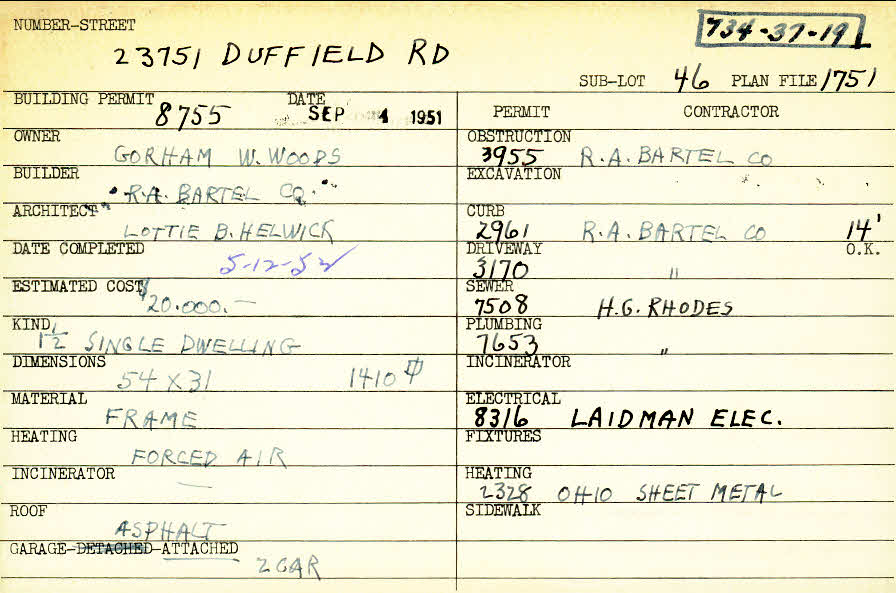 NUMBER-STREET
734-37-19
23751 DUFFIELD RD
SUB-LOT 46 PLAN FILE 1751
BUILDING PERMIT 8755 DATE SEP 4 1951
OWNER GORHAM W. WOODS
BUILDER R.A. BARTEL CO.
ARCHITECT LOTTIE B. HELWICK
DATE COMPLETED 5-12-52
ESTIMATED COST $20.000.—
KIND 1 1/2 SINGLE DWELLING
DIMENSIONS 54 X 31 1410
MATERIAL FRAME
HEATING FORCED AIR
INCINERATOR —
ROOF ASPHALT
GARAGE-DETACHED-ATTACHED 2 CAR
PERMIT CONTRACTOR
OBSTRUCTION 3955 R.A. BARTEL CO
EXCAVATION
CURB 2961 R.A. BARTEL CO 14' O.K.
DRIVEWAY 3170 "
SEWER 7508 H.G. RHODES
PLUMBING 7653 "
INCINERATOR
ELECTRICAL 8316 LAIDMAN ELEC.
FIXTURES
HEATING 2328 OHIO SHEET METAL
SIDEWALK